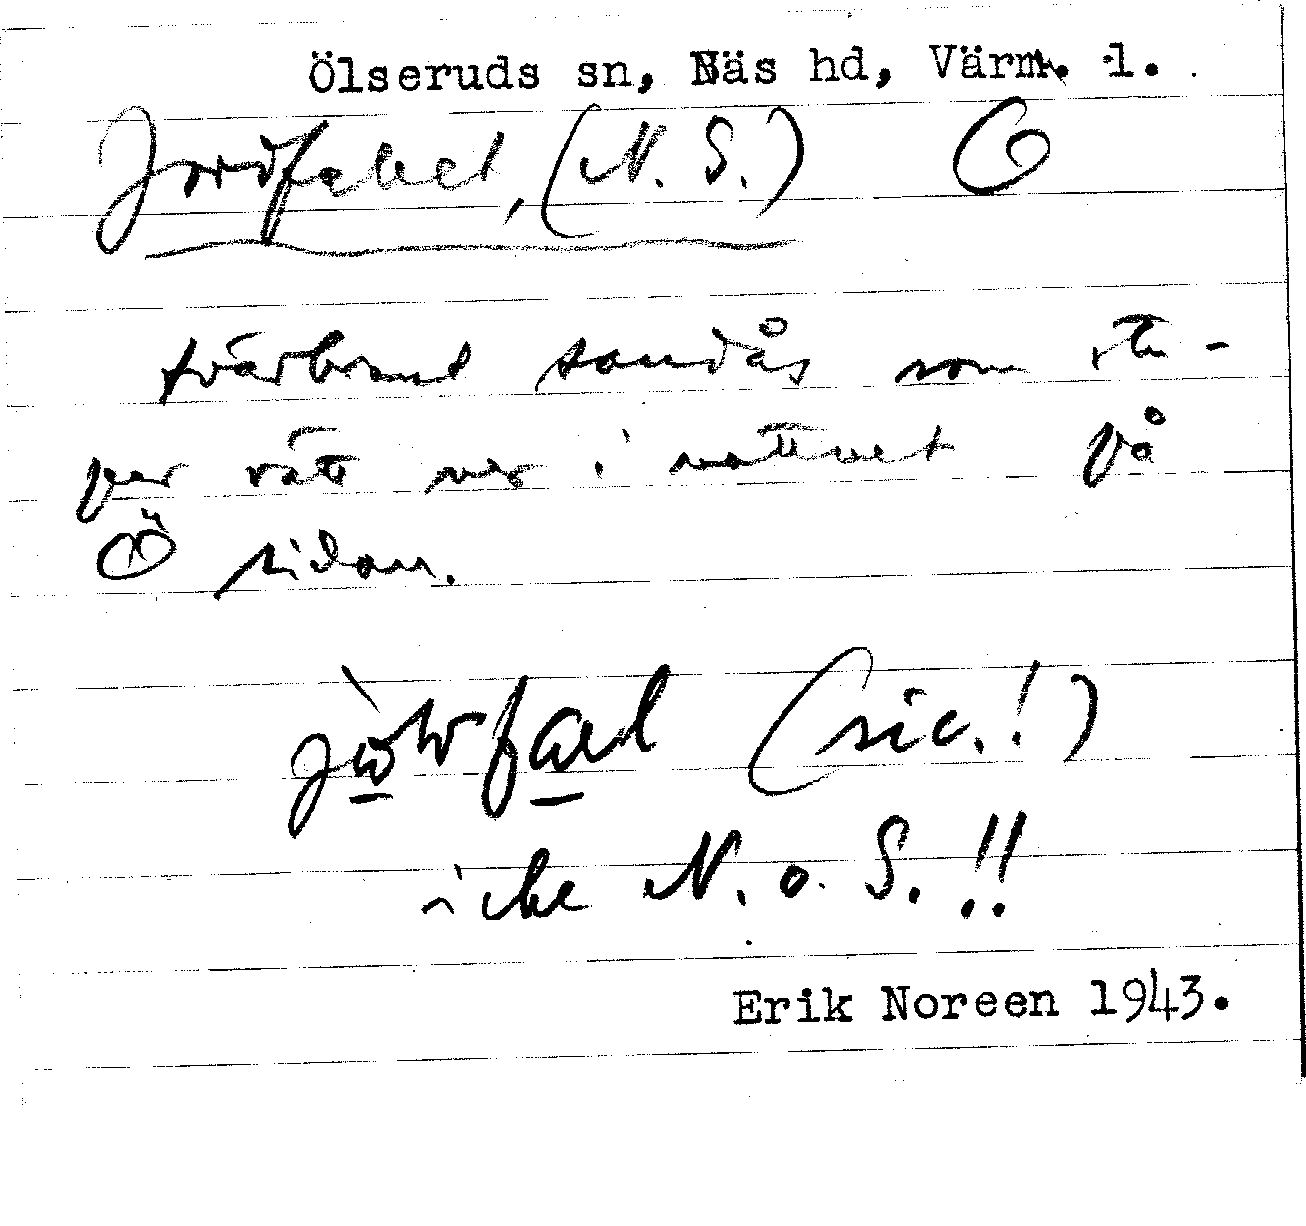 Ölseruds sn, Näs hd, Värm. l.
Jordfallet, (N. S.) O
tvärbrant sandås som stu-
par rätt ner i vattnet på
Ö sidan.
icke N. o. S. !!
Erik Noreen 1943.